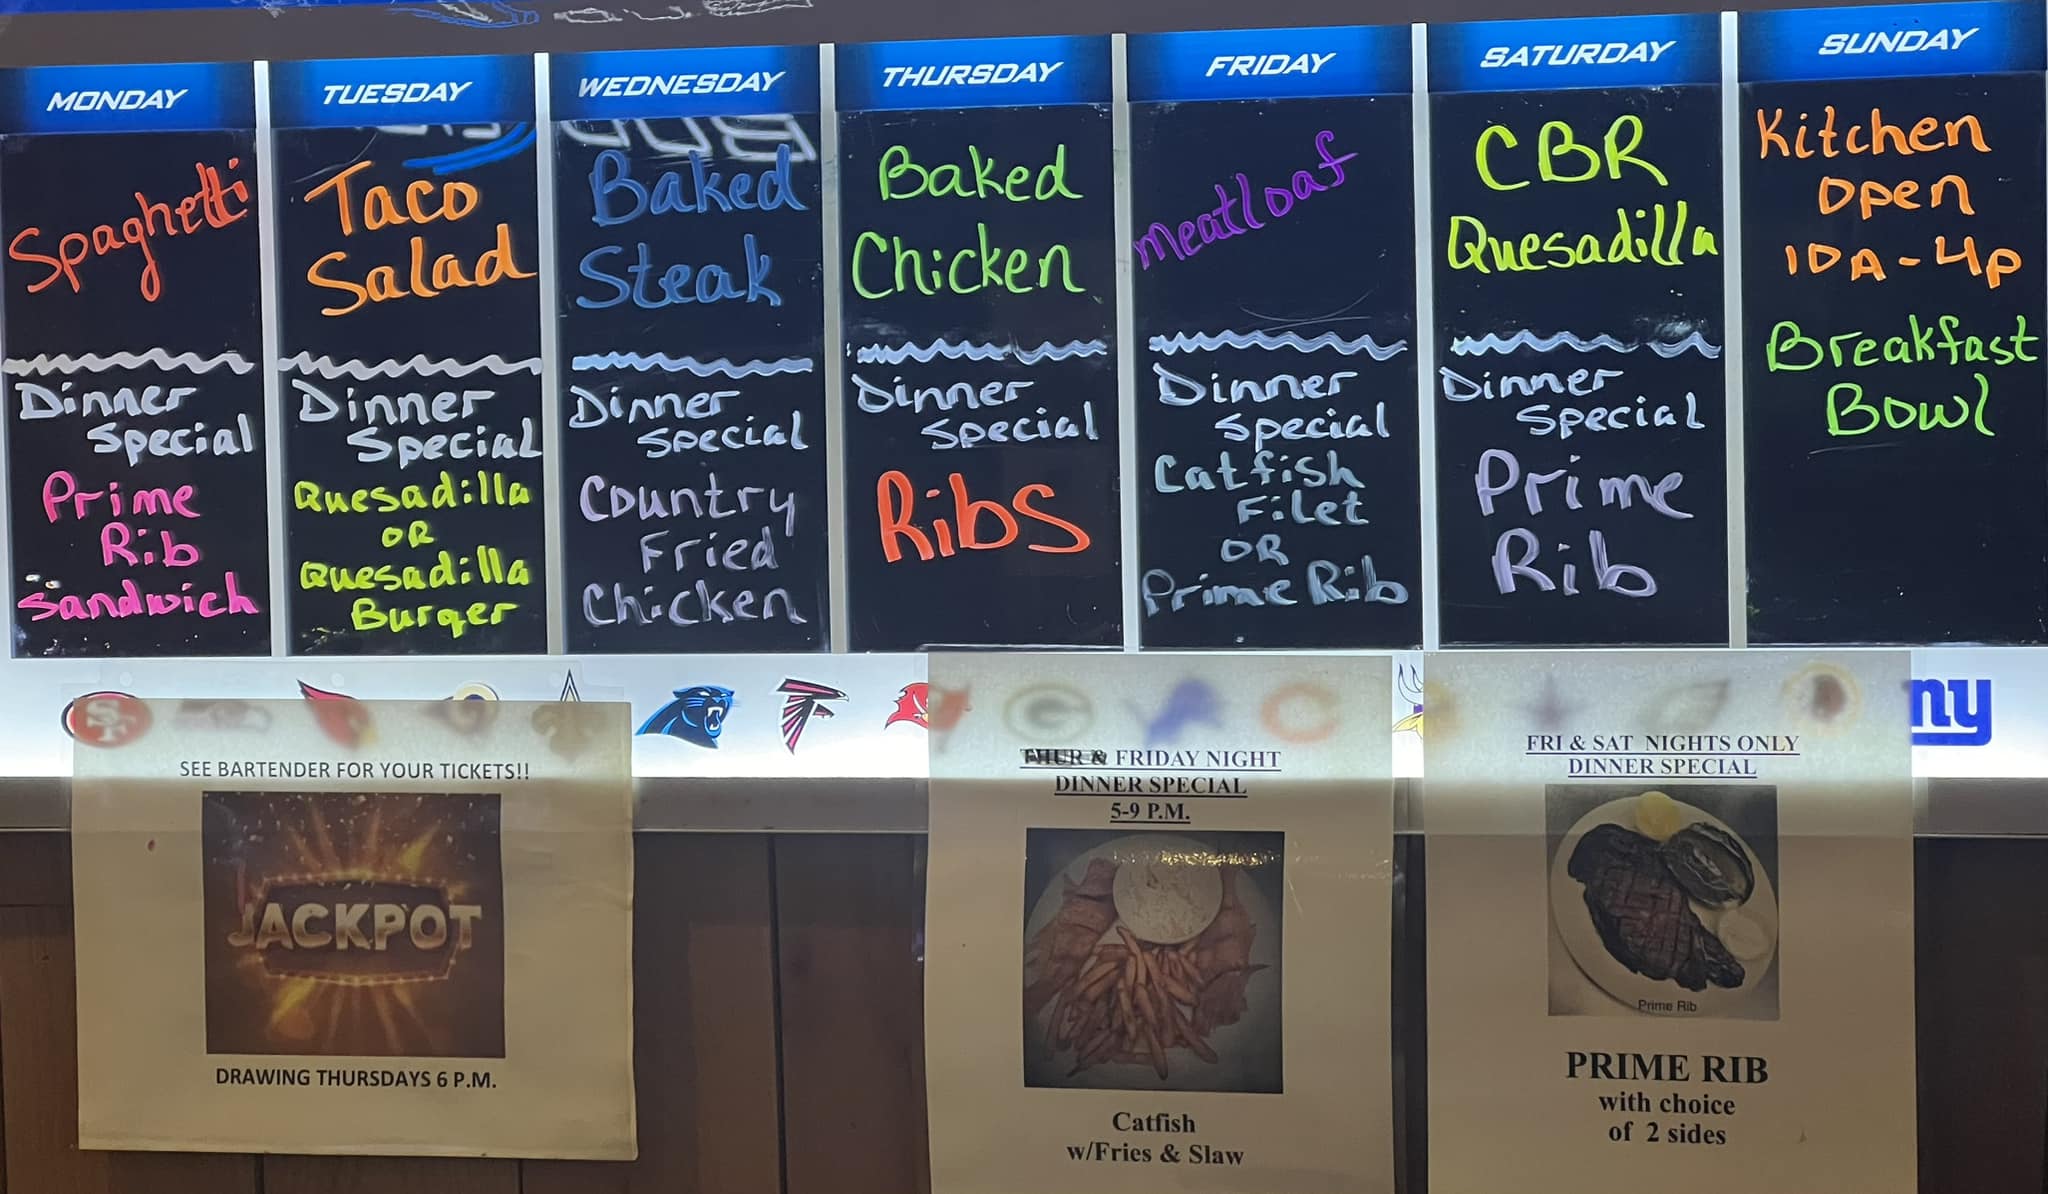 MONDAY
Spaghetti
Dinner
Special
Prime
Rib
Sandwich
TUESDAY
Taco
Salad
Dinner
Special
Quesadilla
OR
Quesadilla
Burger
WEDNESDAY
Baked
Steak
Dinner
Special
Country
Fried
Chicken
THURSDAY
Baked
Chicken
Dinner
Special
Ribs
FRIDAY
meatloaf
Dinner
Special
Catfish
Filet
OR
Prime Rib
SATURDAY
CBR
Quesadilla
Dinner
Special
Prime
Rib
SUNDAY
Kitchen
open
10A-4p
Breakfast
Bowl
SF
G
C
ny
SEE BARTENDER FOR YOUR TICKETS!!
JACKPOT
DRAWING THURSDAYS 6 P.M.
THUR & FRIDAY NIGHT
DINNER SPECIAL
5-9 P.M.
Catfish
w/Fries & Slaw
FRI & SAT NIGHTS ONLY
DINNER SPECIAL
Prime Rib
PRIME RIB
with choice
of 2 sides